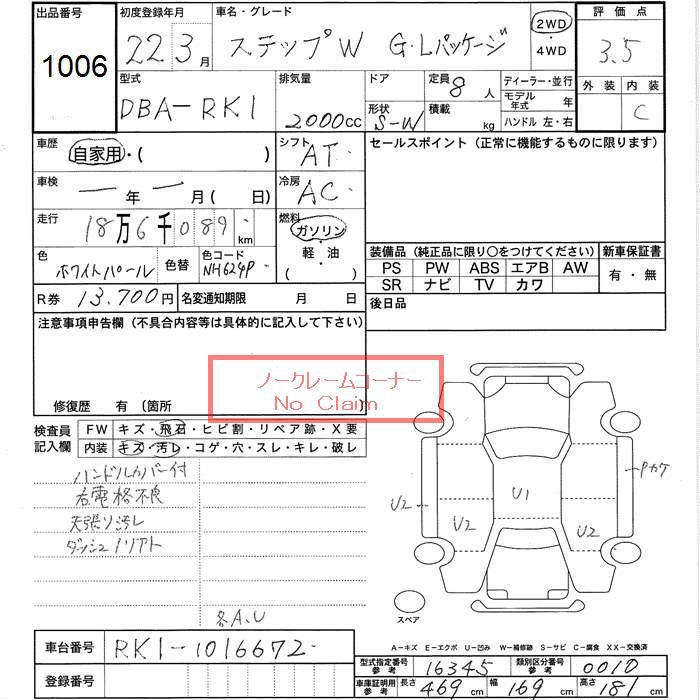 出品番号 初度登録年月 車名・グレード 評価点
1006 22 3月 ステップW G・Lパッケージ 2WD・4WD 3.5
型式 排気量 ドア 定員 ディーラー・並行 外装 内装
DBA-RK1 2000cc 8人 モデル年式 年 C
形状 S-W 積載 kg ハンドル 左・右
車歴 自家用・( ) シフト AT セールスポイント (正常に機能するものに限ります)
車検 年 月 (日) 冷房 AC
走行 18万6千089km 燃料 ガソリン・軽・油 ( )
色 ホワイトパール 色替 色コード NH624P 装備品 (純正品に限り○をつけてください) 新車保証書
PS PW ABS エアB AW 有・無
SR ナビ TV カワ
R券 13,700円 名変通知期限 月 日 後日品
注意事項申告欄 (不具合内容等は具体的に記入して下さい)
ノークレームコーナー
No Claim
修復歴 有 〔箇所 〕
検査員記入欄 FW キズ・飛石・ヒビ割・リペア跡・X要
内装 キズ・汚レ・コゲ・穴・スレ・キレ・破レ
ハンドルカバー付
右電格不良
天張り汚レ
ダッシュノリアト
各A、U
Pカケ
U2 U1
U2 U2
スペア
A-キズ E-エクボ U-凹み W-補修跡 S-サビ C-腐食 XX-交換済
車台番号 RK1-1016672
型式指定番号参考 16345 類別区分番号参考 0010
登録番号
車庫証明用参考 長さ 469cm 幅 169cm 高さ 181cm